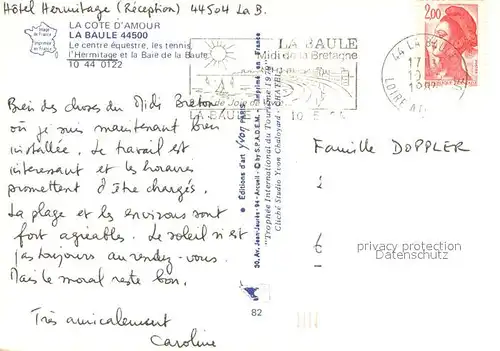 Hôtel Hermitage (Réception) 44504 La B.
LA COTE D'AMOUR
LA BAULE 44500
Le centre équestre, les tennis,
l'Hermitage et la Baie de la Baule
10 44 0122
Image de France
Imprimée en France
LA BAULE
Midi de la Bretagne
LA BAULE
2,00
44 LA BAULE
LOIRE
Bien des choses du Midi Breton
où je suis maintenant bien
installée. Le travail est
intéressant et les horaires
promettent d'être chargés.
La plage et les environs sont
fort agréables. Le soleil n'est
pas toujours au rendez-vous.
Mais le moral reste bon.
Très amicalement
Caroline
Editions d'art yvon PARIS
30, Av. Jean-Jaurès - 94 - Arcueil - © by S.P.A.D.E.M. - Imprimé en France
"Trophée International du Tourisme 1979"
Cliché Studio Yvon Chaloyard
82
Famille DOPPLER
privacy protection
Datenschutz